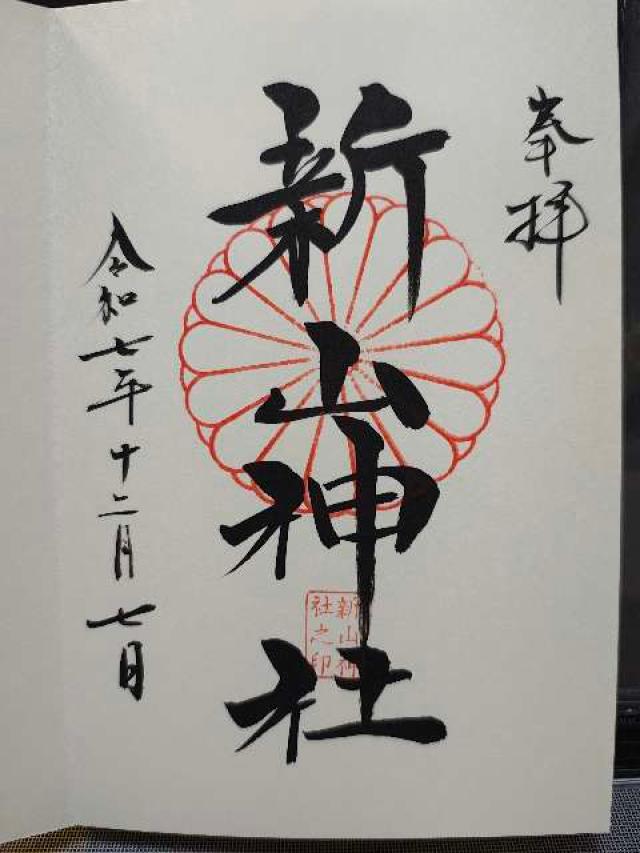 奉拝
新山神社
新山神
社之印
令和七年十二月七日